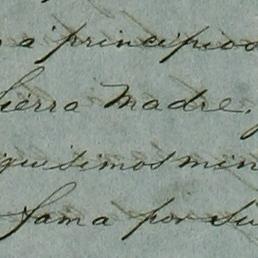 a principios
Sierra Madre,
quisimos min
fama por su